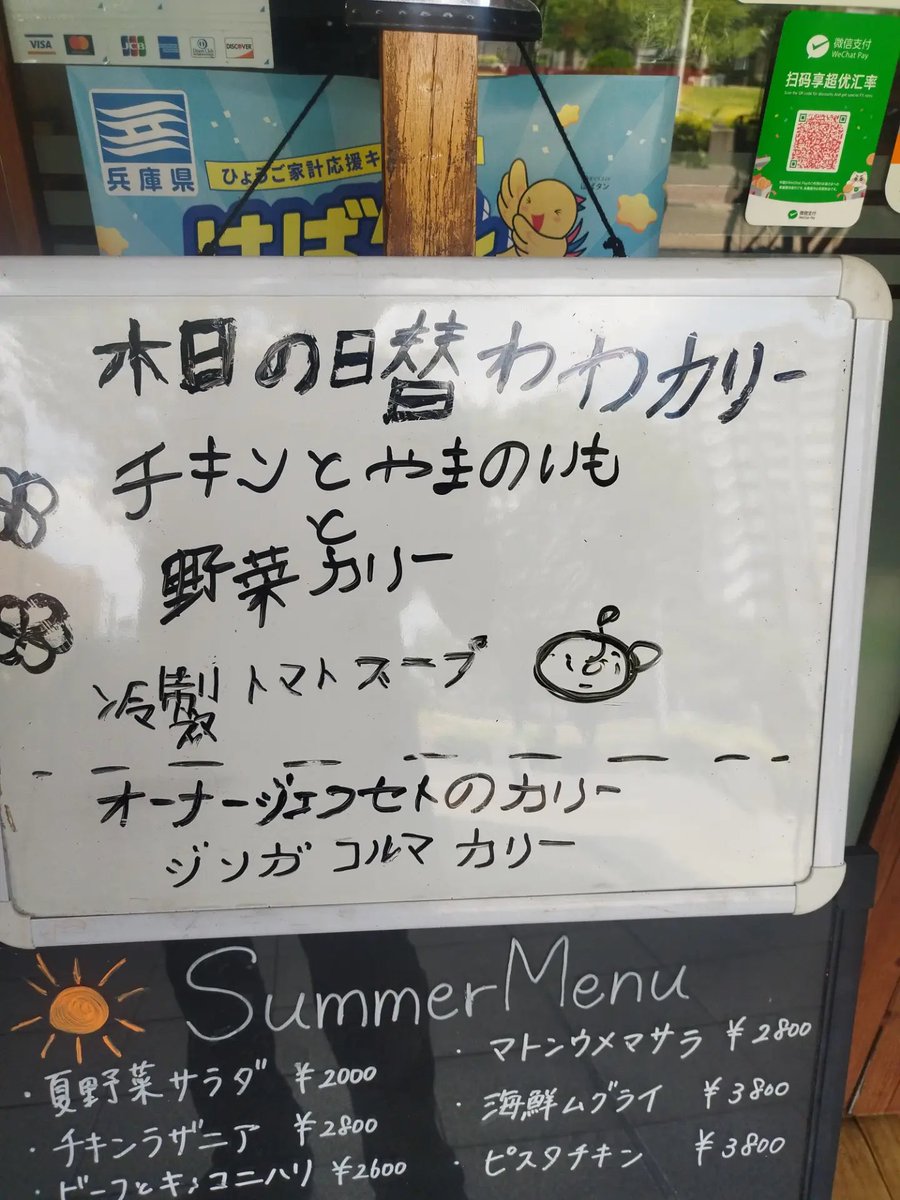 VISA
JCB
DISCOVER
微信支付
WeChat Pay
扫码享超优汇率
微信支付
兵庫県
ひょうご家計応援キ
はばタン
木日の日替わりカリー
チキンとやまのいも
と
野菜カリー
冷製トマトスープ
オーナージェフセトのカリー
ジンガコルマカリー
Summer Menu
・夏野菜サラダ ¥2000
・チキンラザニア ¥2800
・ビーフとキョコニハリ ¥2600
・マトンウメマサラ ¥2800
・海鮮ムグライ ¥3800
・ピスタチキン ¥3800